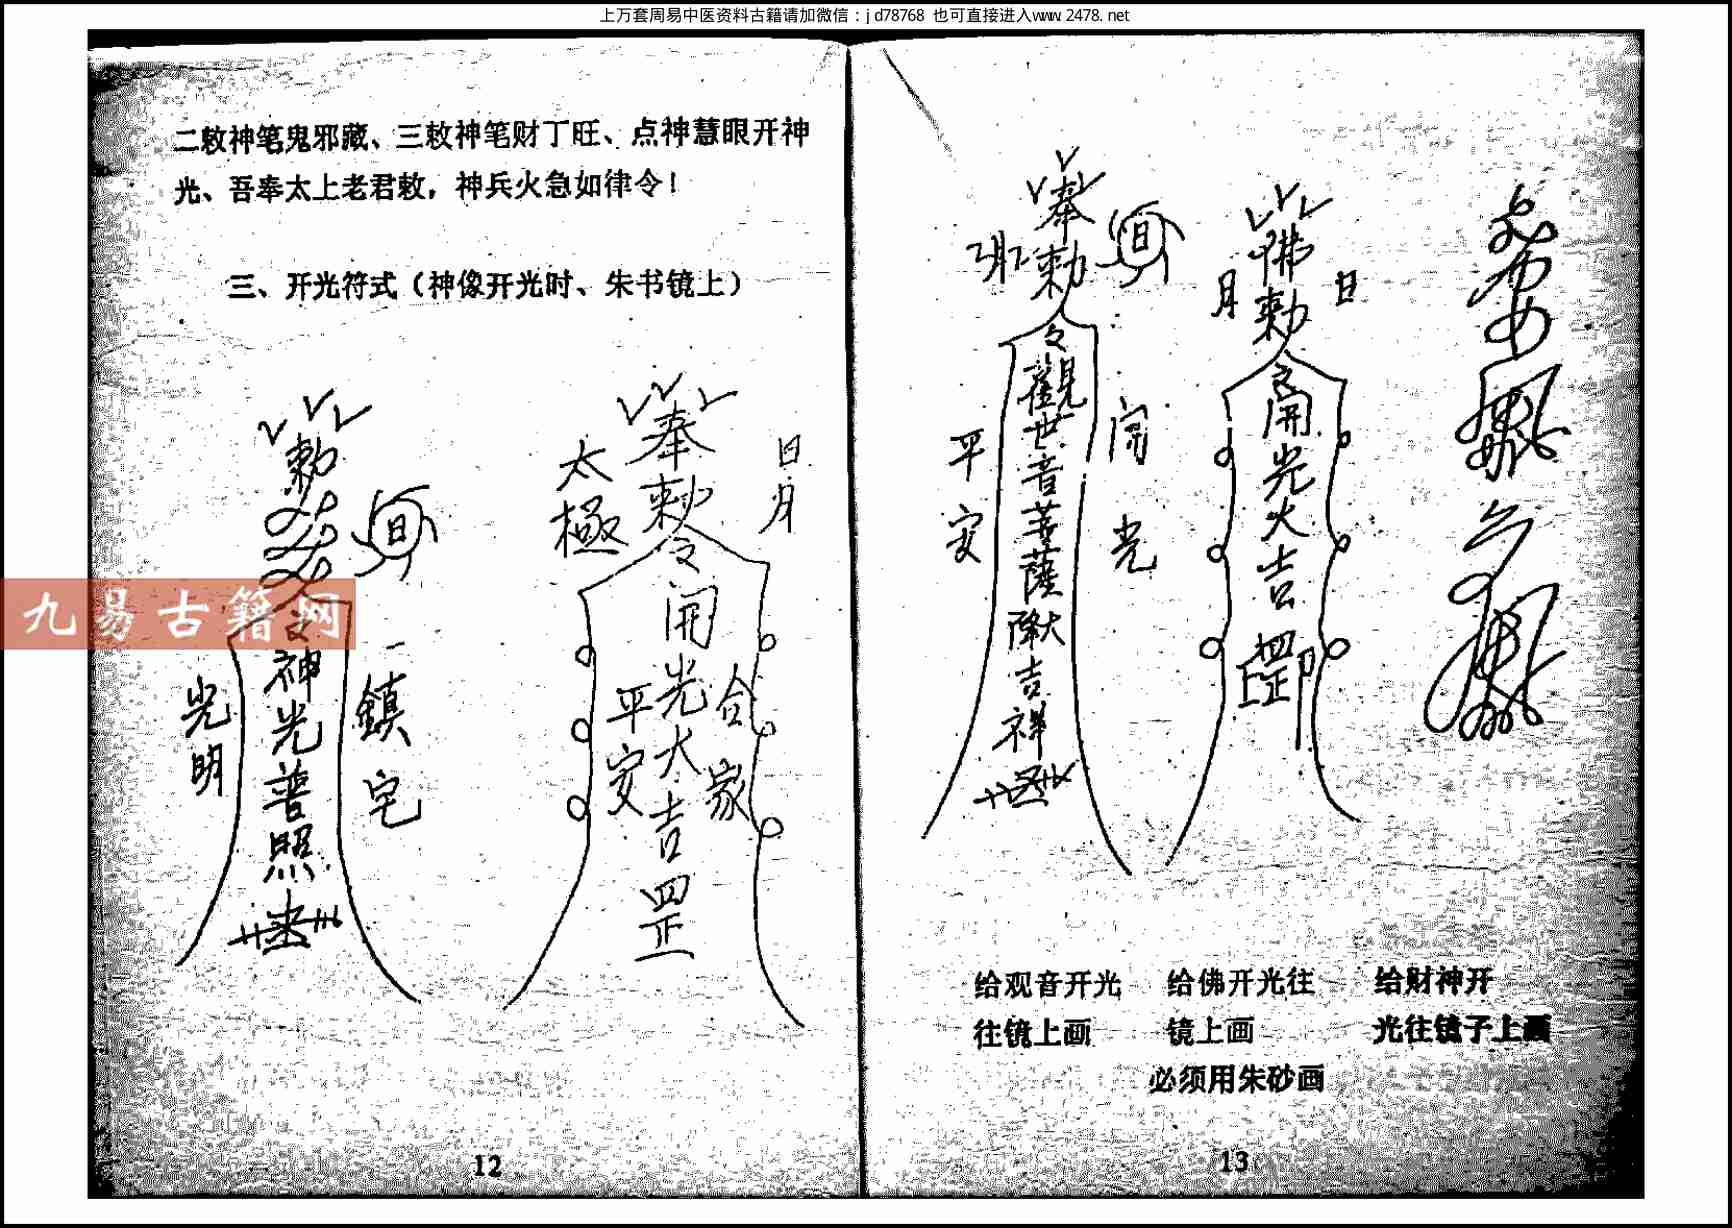 上万套周易中医资料古籍请加微信：jd78768 也可直接进入www.2478.net
二敕神笔鬼邪藏、三敕神笔财丁旺、点神慧眼开神
光、吾奉太上老君敕，神兵火急如律令！
三、开光符式（神像开光时、朱书镜上）
敕
神光普照
光明
鎮宅
奉敕令開光大吉罡
太極
日月
平安
合家
九易古籍网
12
奉敕令觀世音菩薩
吉祥
平安
開光
佛敕令開光大吉罡
月
日
给观音开光
往镜上画
给佛开光往
镜上画
给财神开
光往镜子上画
必须用朱砂画
13